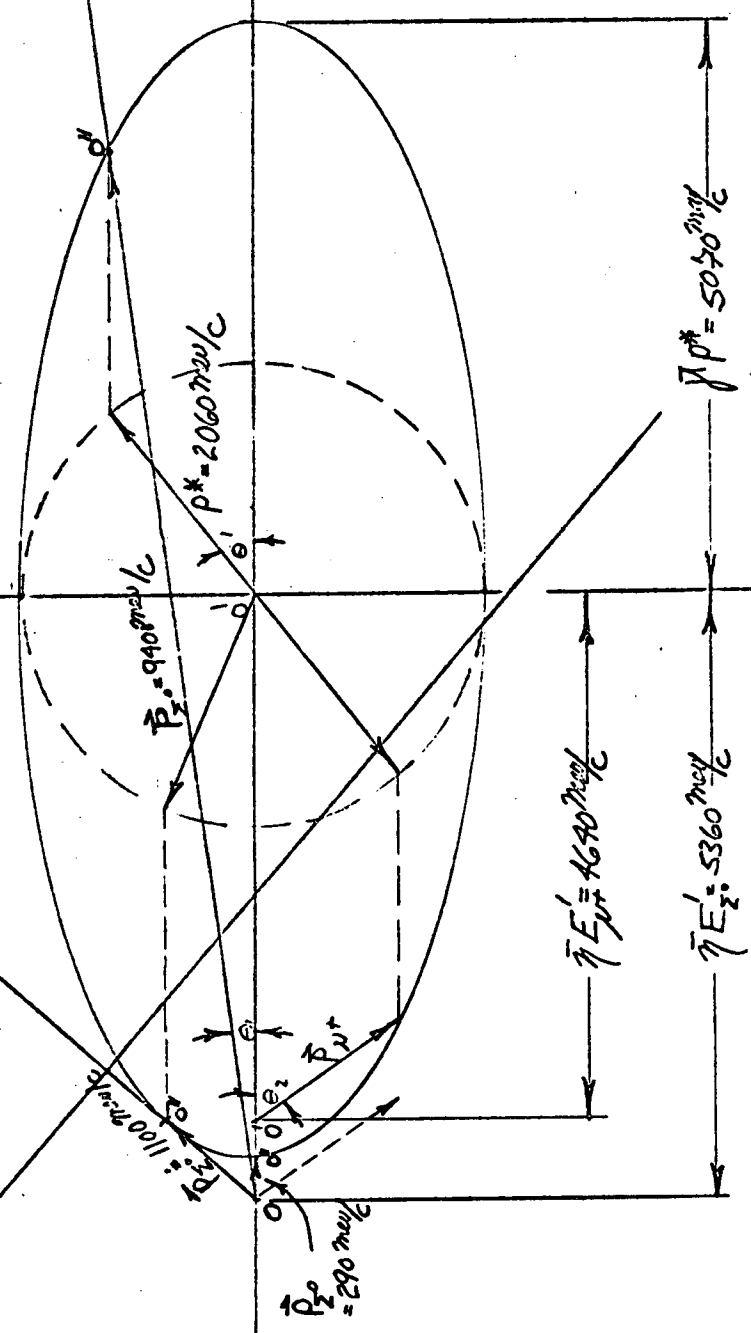 O"
P* = 2060 mev/c
θ'
O'
P⃗Σ° = 940 mev/c
γ̄ P* = 5070 mev/c
η̄ E'μ+ = 4640 mev/c
η̄ E'Σ° = 5360 mev/c
θ₁
P⃗μ+
θ₂
O'
O"
O"
= 1100 mev/c
O
P⃗Σ°
= 290 mev/c